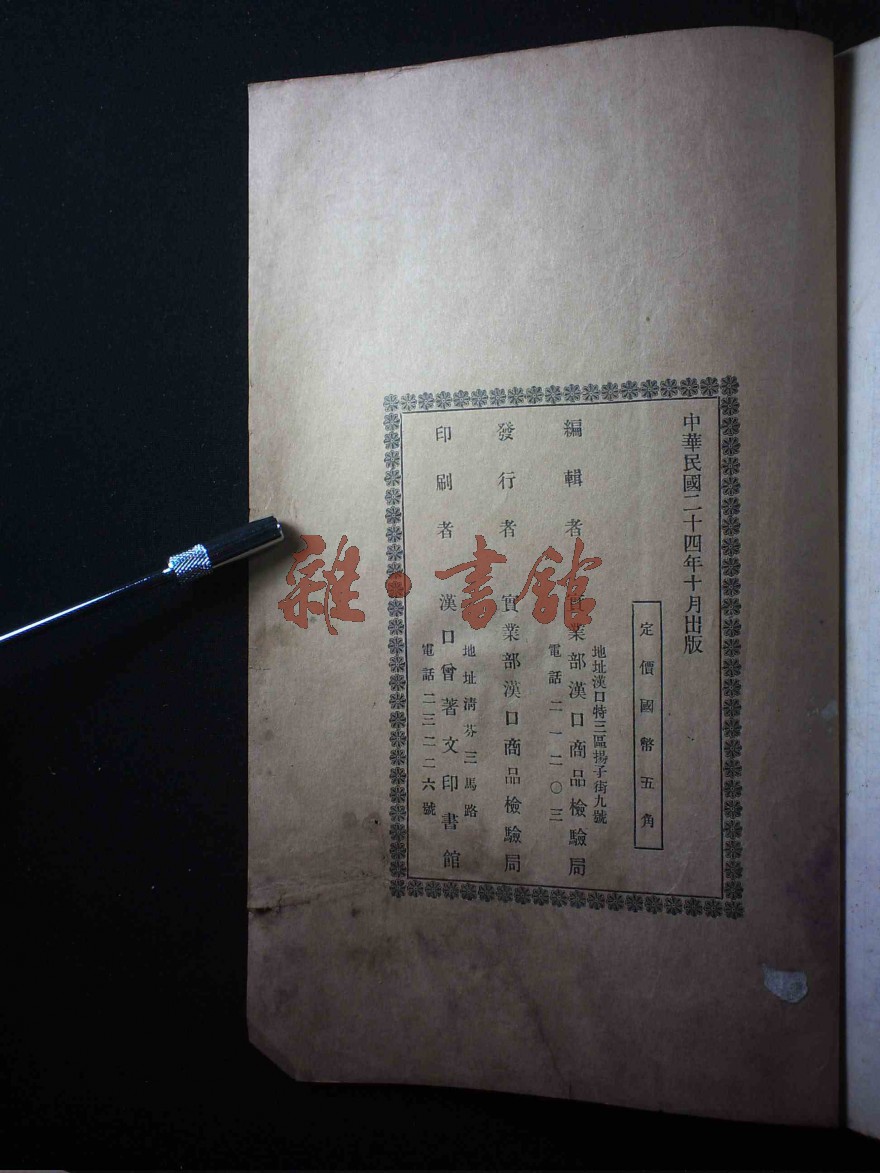 中華民國二十四年十月出版
定價國幣五角
地址漢口特三區揚子街九號
編輯者 實業部漢口商品檢驗局
電話二一二〇三
發行者 實業部漢口商品檢驗局
地址清芬三馬路
印刷者 漢口曾著文印書館
電話二三二二六號
雜·書館